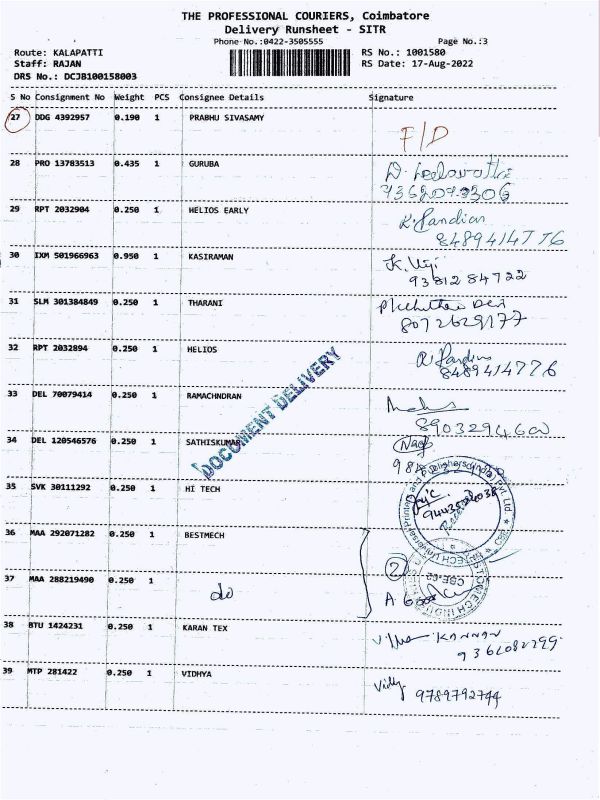 THE PROFESSIONAL COURIERS, Coimbatore
Delivery Runsheet - SITR
Phone No.:0422-3505555 Page No.:3
Route: KALAPATTI RS No.: 1001580
Staff: RAJAN RS Date: 17-Aug-2022
DRS No.: DCJB100158003
S No Consignment No Weight PCS Consignee Details Signature
27 DDG 4392957 0.190 1 PRABHU SIVASAMY
F/D
28 PRO 13783513 0.435 1 GURUBA
29 RPT 2032904 0.250 1 HELIOS EARLY
K. Pandian
8489414776
30 IXM 501966963 0.950 1 KASIRAMAN
K. Viji
9381284722
31 SLM 301384849 0.250 1 THARANI
8072629177
32 RPT 2032894 0.250 1 HELIOS
8489414776
33 DEL 70079414 0.250 1 RAMACHNDRAN
DOCUMENT DELIVERY
34 DEL 120546576 0.250 1 SATHISKUMAR
35 SVK 30111292 0.250 1 HI TECH
36 MAA 292071282 0.250 1 BESTMECH
2
37 MAA 288219490 0.250 1 do
38 BTU 1424231 0.250 1 KARAN TEX
KANNAN
39 MTP 281422 0.250 1 VIDHYA
Vidhy
9789792744